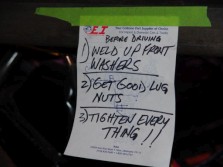 BEFORE DRIVING
1) WELD UP FRONT
WASHERS
2) GET GOOD LUG
NUTS
3) TIGHTEN EVERY
THING!!